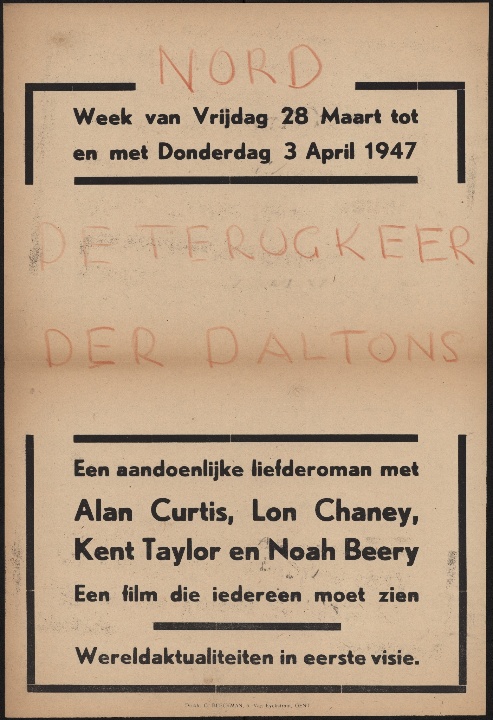 NORD
Week van Vrijdag 28 Maart tot
en met Donderdag 3 April 1947
DE TERUGKEER
DER DALTONS
Een aandoenlijke liefderoman met
Alan Curtis, Lon Chaney,
Kent Taylor en Noah Beery
Een film die iedereen moet zien
Wereldaktualiteiten in eerste visie.
GENT